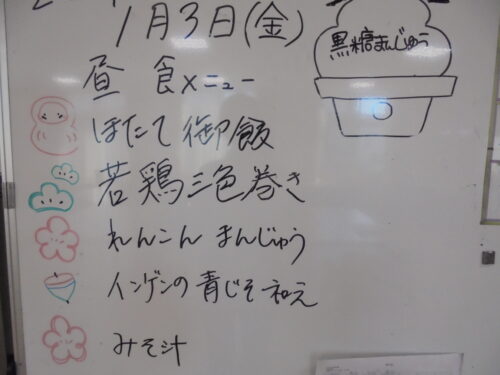 1月3日(金)
黒糖まんじゅう
昼食メニュー
ほたて御飯
若鶏三色巻き
れんこんまんじゅう
インゲンの青じそ和え
みそ汁